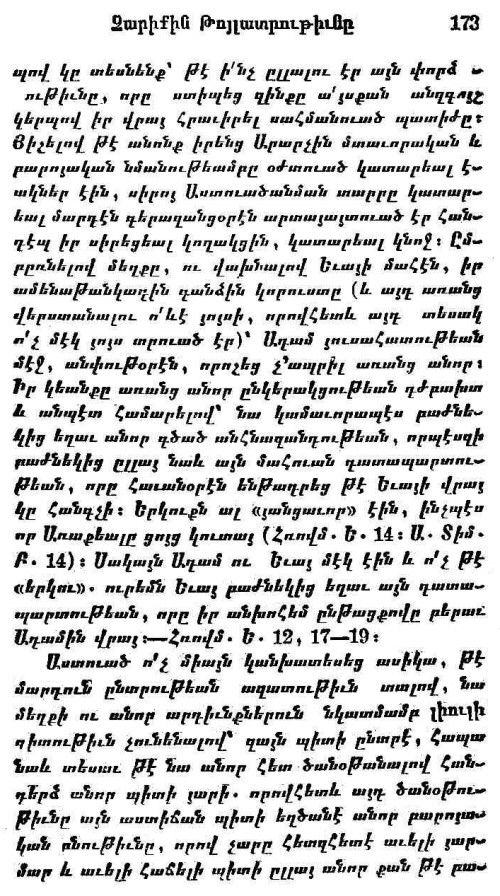 Չարիքին Թոյլատրութիւնը 173
պով կը տեսնենք՝ թէ ի՛նչ ըլլալու էր այն փորձ -
ութիւնը, որը ստիպեց զինքը ա՛յսքան անզգոյշ
կերպով իր վրայ հրաւիրել սահմանուած պատիժը։
Յիշելով թէ անոնք իրենց Արարչին մտաւորական և
բարոյական նմանութեամբը օժտուած կատարեալ է-
ակներ էին, սիրոյ Աստուածանման տարրը կատար-
եալ մարդէն գերազանցօրէն արտայայտուած էր հան-
դէպ իր սիրեցեալ կողակցին, կատարեալ կնոջ։ Ըմ-
բռնելով մեղքը, ու վախնալով Եւայի մահէն, իր
ամենաթանկագին գանձին կորուստը (և այդ առանց
վերստանալու ո՛ևէ յոյսի, որովհետև այդ տեսակ
ո՛չ մէկ յոյս տրուած էր)՝ Ադամ յուսահատութեան
մէջ, անփութօրէն, որոշեց չ՚ապրիլ առանց անոր։
Իր կեանքը առանց անոր ընկերակցութեան դժբախտ
և անպէտ համարելով՝ նա կամաւորապէս բաժնե-
կից եղաւ անոր գծած անհնազանդութեան, որպէսզի
բաժնեկից ըլլայ նաև այն մահուան դատապարտու-
թեան, որը հաւանօրէն ենթադրեց թէ Եւայի վրայ
կը հանգչի։ Երկուքն ալ «յանցաւոր» էին, ինչպէս
որ Առաքեալը ցոյց կուտայ (Հռովմ. Ե. 14։ Ա. Տիմ.
Բ. 14)։ Սակայն Ադամ ու Եւայ մէկ էին և ո՛չ թէ
«երկու». ուրեմն Եւայ բաժնեկից եղաւ այն դատա-
պարտութեան, որը իր անխոհեմ ընթացքովը բերաւ
Ադամին վրայ։—Հռովմ. Ե. 12, 17—19։
Աստուած ո՛չ միայն կանխատեսեց ասիկա, թէ
մարդուն ընտրութեան ազատութիւն տալով, նա
մեղքի ու անոր արդիւնքներուն նկատմամբ լիուլի
գիտութիւն չունենալով՝ զայն պիտի ընտրէ, հապա
նաև տեսաւ թէ նա անոր հետ ծանօթանալով հան-
դերձ անոր պիտի յարի. որովհետև այդ ծանօթու-
թիւնը այն աստիճան պիտի եղծանէ անոր բարոյա-
կան բնութիւնը, որով չարը հետզհետէ աւելի յար-
մար և աւելի հաճելի պիտի ըլլայ անոր քան թէ բա-